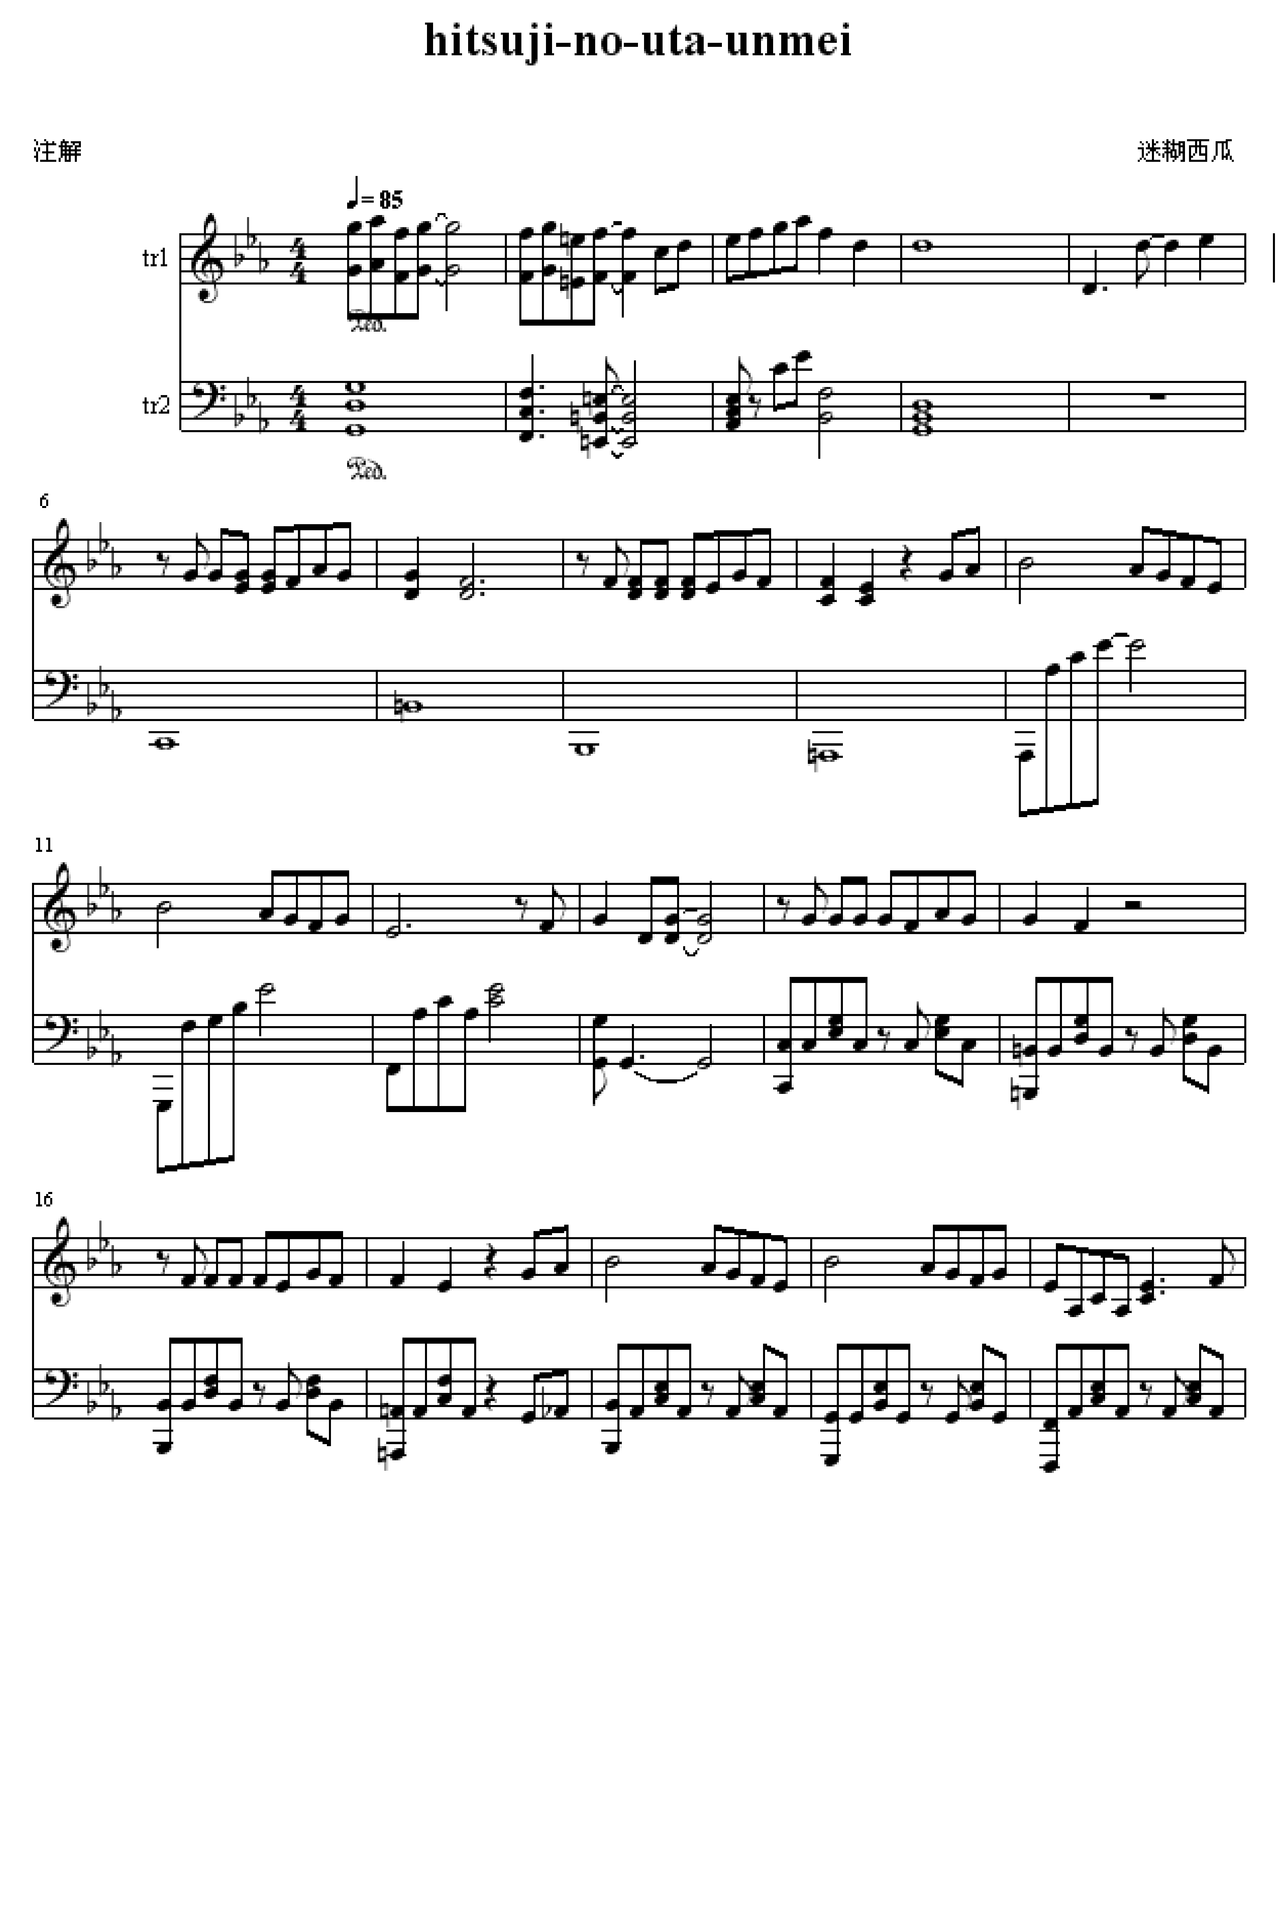 hitsuji-no-uta-unmei
注解
迷糊西瓜
= 85
tr1
4
4
Ped.
tr2
4
4
Ped.
6
11
16